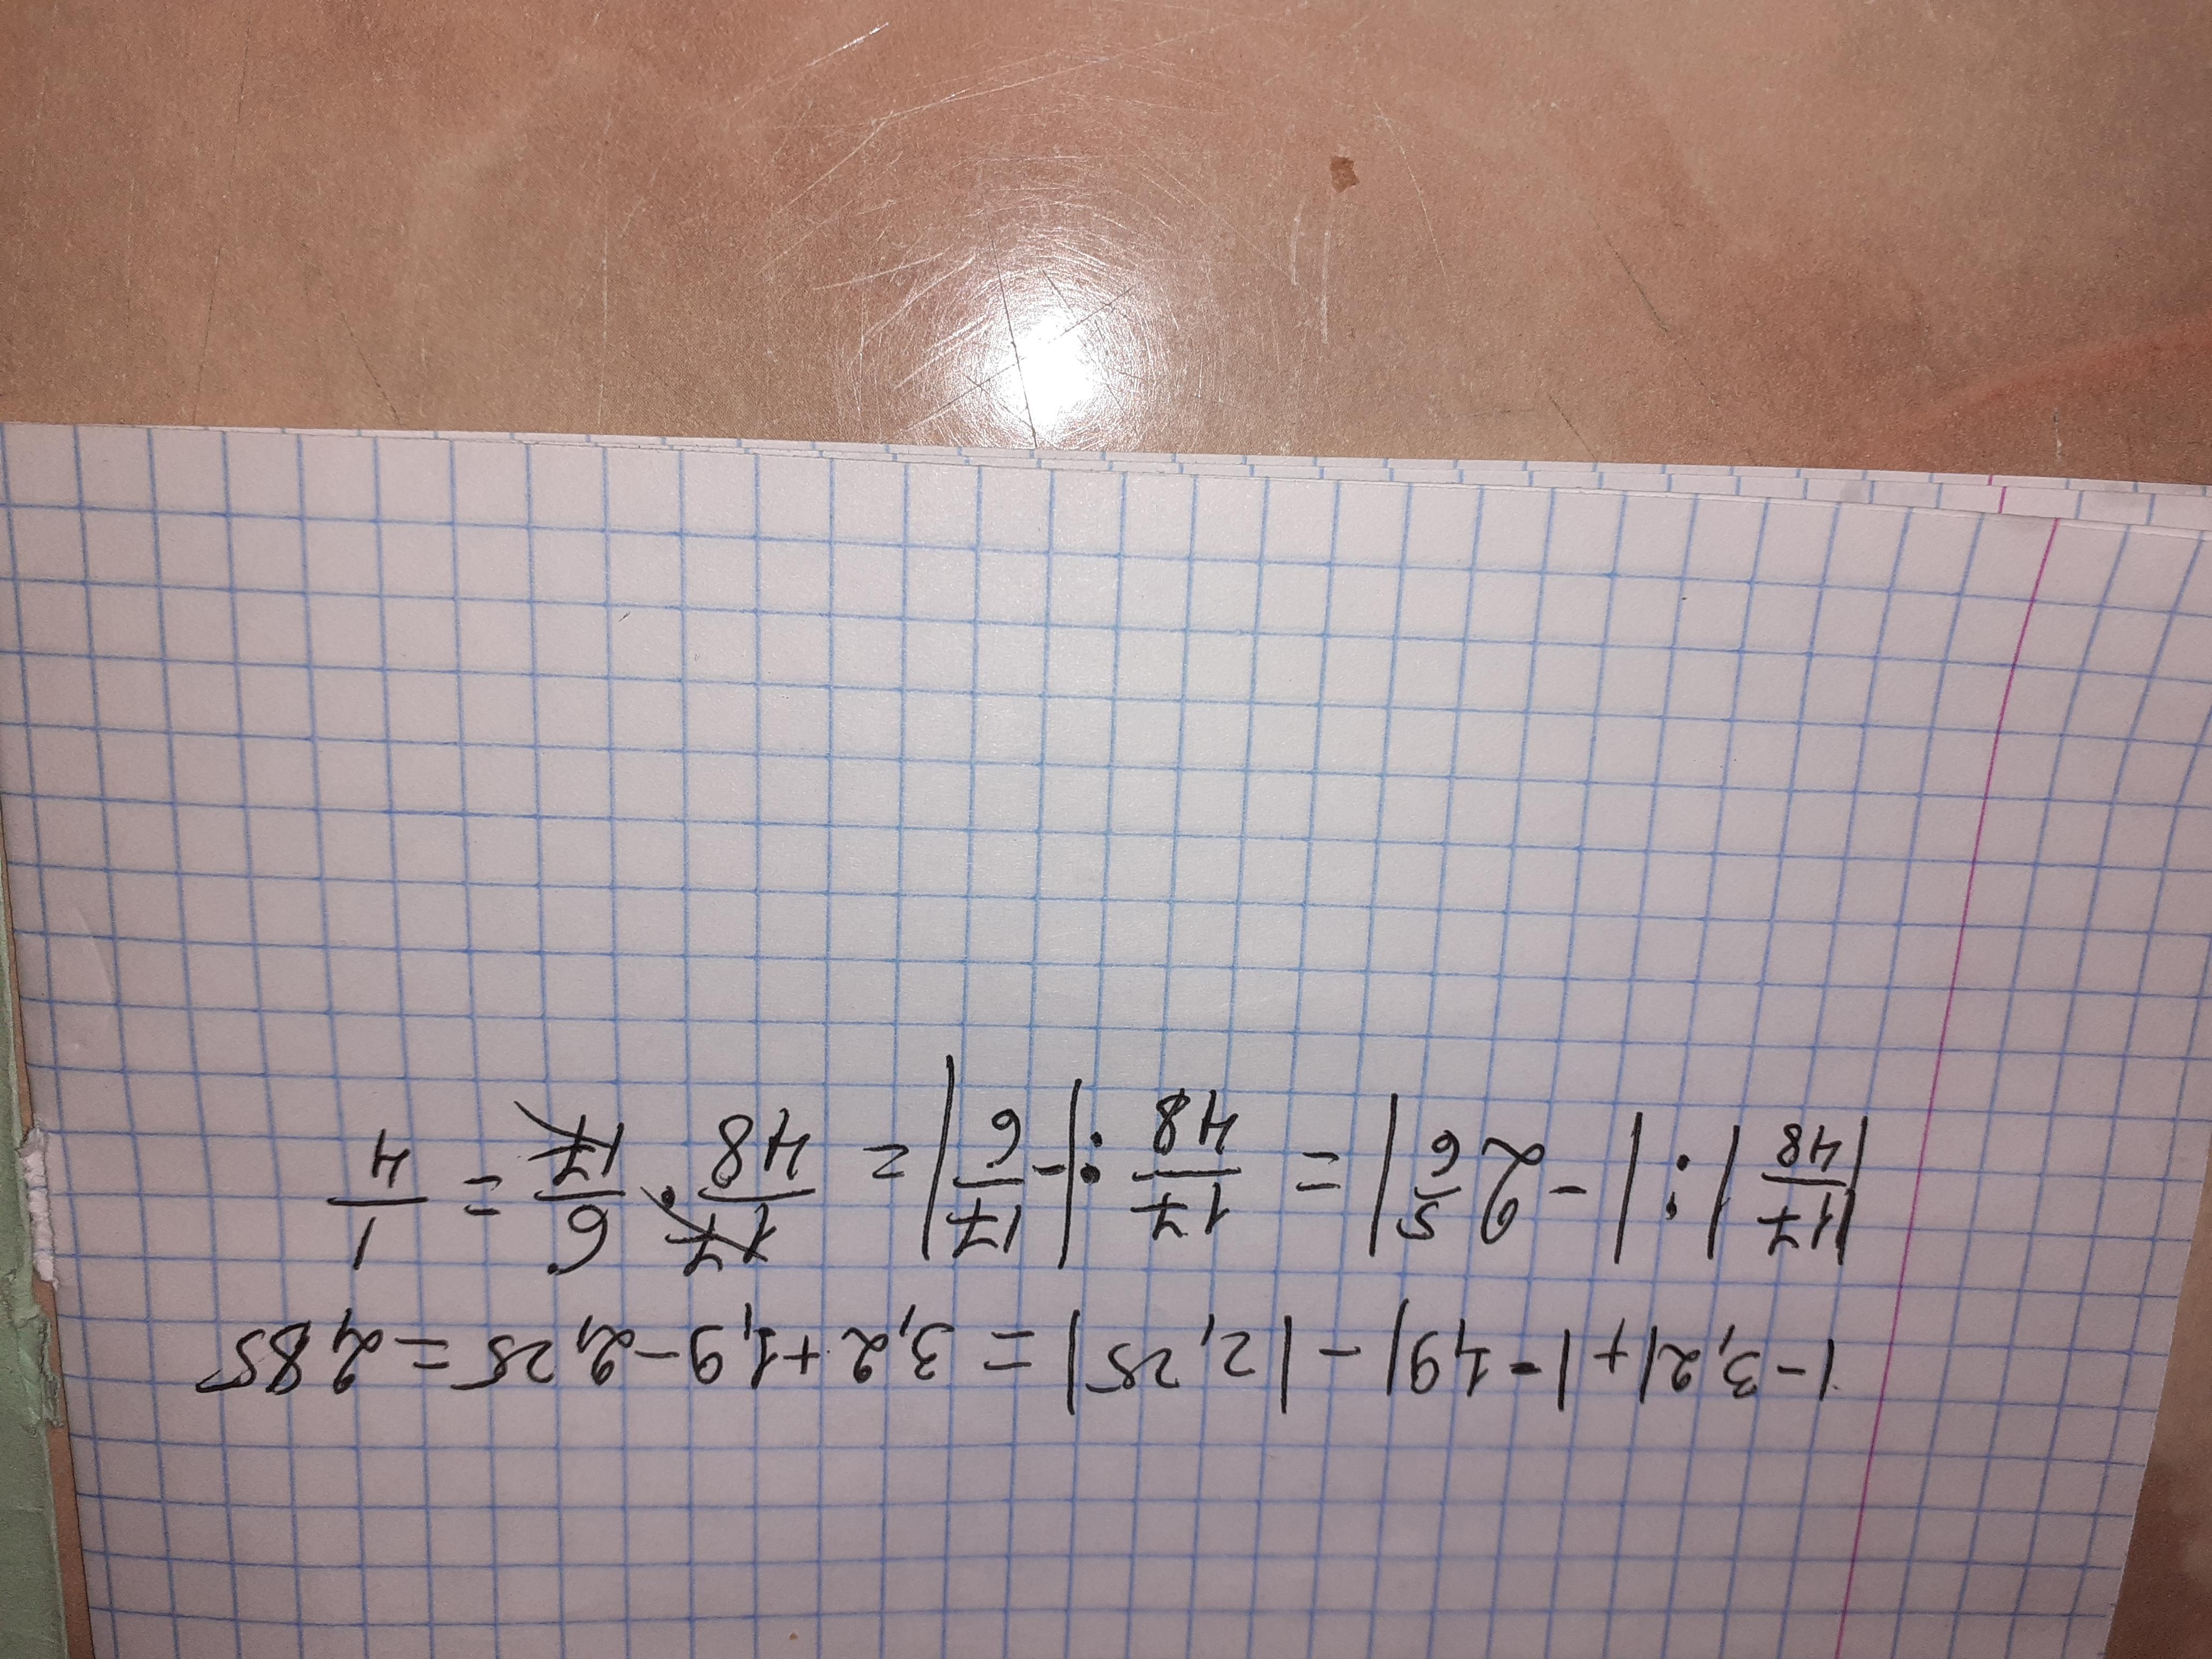 |-3,2|+|-1,9|-|2,25|=3,2+1,9-2,25=2,85
|17/48|:|-2 5/6|=17/48:|-17/6|=17/48·6/17=1/4